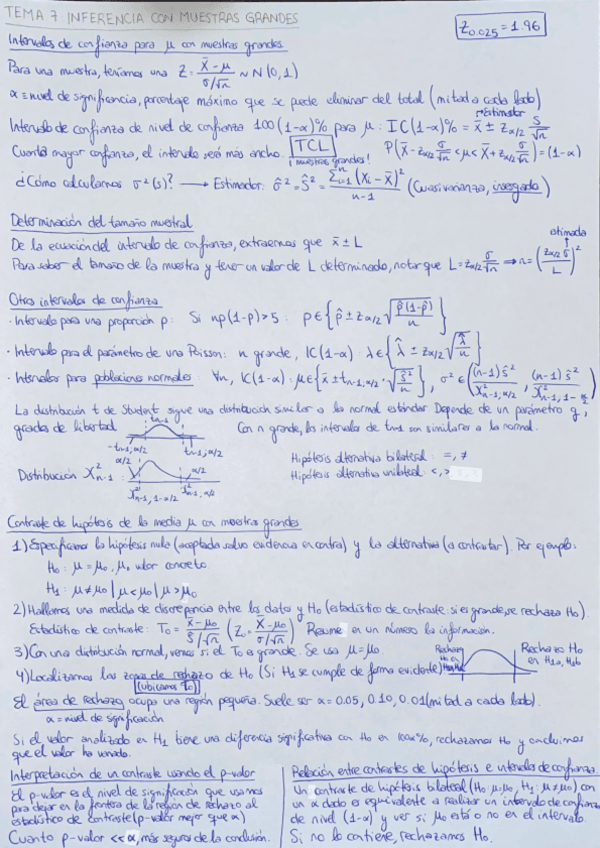 TEMA 7: INFERENCIA CON MUESTRAS GRANDES
Z0.025 = 1.96
Intervalos de confianza para μ con muestras grandes
Para una muestra, teníamos una Z = (X̄ - μ)/(σ/√n) ~ N(0,1)
α ≡ nivel de significación, porcentaje máximo que se puede eliminar del total (mitad a cada lado)
Intervalo de confianza de nivel de confianza 100(1-α)% para μ: IC(1-α)% = x̄ ± zα/2 S/√n
estimador
Cuanta mayor confianza, el intervalo será más ancho. TCL P(x̄ - zα/2 σ/√n < μ < x̄ + zα/2 σ/√n) = (1-α)
¡muestras grandes!
¿Cómo calculamos σ² (s)? → Estimador: σ̂² = Ŝ² = Σⁿᵢ₌₁ (Xi - X̄)² / (n-1) (Cuasivarianza, insesgada)
Determinación del tamaño muestral
De la ecuación del intervalo de confianza, extraemos que x̄ ± L
estimada
Para saber el tamaño de la muestra y tener un valor de L determinado, notar que L = zα/2 σ/√n ⇒ n = (zα/2 σ / L)²
Otros intervalos de confianza
· Intervalo para una proporción p: Si np(1-p)>5 : p ∈ {p̂ ± zα/2 √(p̂(1-p̂)/n)}
· Intervalo para el parámetro de una Poisson: n grande, IC(1-α): λ ∈ {λ̂ ± zα/2 √(λ̂/n)}
· Intervalos para poblaciones normales: ∀n, IC(1-α): μ ∈ {x̄ ± tn-1,α/2 · √(ŝ²/n)}, σ² ∈ ((n-1)ŝ²/χ²n-1,α/2 , (n-1)ŝ²/χ²n-1,1-α/2)
La distribución t de Student sigue una distribución similar a la normal estándar. Depende de un parámetro g,
grados de libertad
Con n grande, los intervalos de tn-1 son similares a la normal.
-tn-1,α/2 tn-1,α/2
Hipótesis alternativa bilateral: =, ≠
Hipótesis alternativa unilateral: <, >
Distribución χ²n-1 : α/2 α/2
χ²n-1,1-α/2 χ²n-1,α/2
Contraste de hipótesis de la media μ con muestras grandes
1) Especificamos la hipótesis nula (aceptada salvo evidencia en contra) y la alternativa (a contrastar). Por ejemplo:
H0: μ = μ0, μ0 valor concreto
H1: μ ≠ μ0 | μ < μ0 | μ > μ0
2) Hallamos una medida de discrepancia entre los datos y H0 (estadístico de contraste: si es grande, se rechaza H0).
Estadístico de contraste: T0 = (x̄ - μ0)/(Ŝ/√n) (Z0 = (X̄ - μ0)/(σ/√n)) Resume en un número la información.
3) Con una distribución normal, vemos si el T0 es grande. Se usa μ = μ0.
Rechazo H0 en
Rechazo H0 en H1a, H1b
4) Localizamos las zonas de rechazo de H0 (Si H1 se cumple de forma evidente)
(ubicamos T0)
El área de rechazo, ocupa una región pequeña. Suele ser α = 0.05, 0.10, 0.01 (mitad a cada lado).
α = nivel de significación
Si el valor analizado en H1 tiene una diferencia significativa con H0 en 100α%, rechazamos H0 y concluimos
que el valor ha variado.
Interpretación de un contraste usando el p-valor
El p-valor es el nivel de significación que usamos
para dejar en la frontera de la región de rechazo al
estadístico de contraste (p-valor mejor que α)
Cuanto p-valor << α, más seguros de la conclusión.
Relación entre contrastes de hipótesis e intervalos de confianza
Un contraste de hipótesis bilateral (H0: μ=μ0, H1: μ≠μ0) con
un α dado es equivalente a realizar un intervalo de confianza
de nivel (1-α) y ver si μ0 está o no en el intervalo.
Si no lo contiene, rechazamos H0.